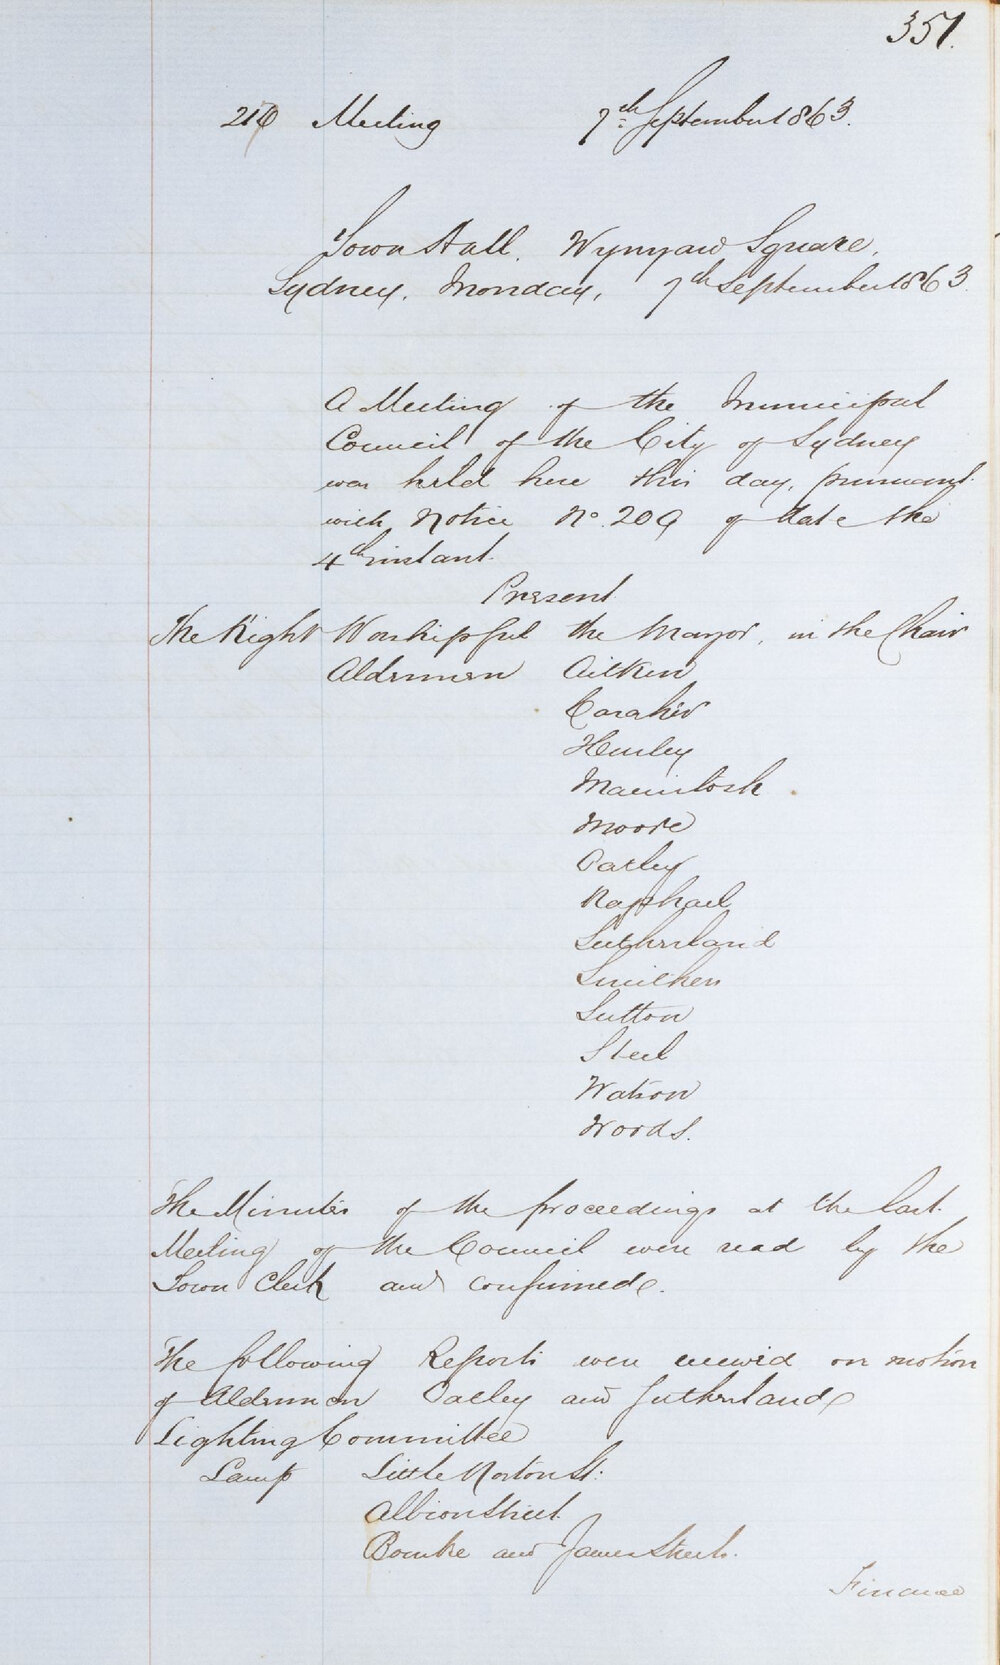 351.
210 Meeting 7th September 1863.
Town Hall. Wynyard Square.
Sydney. Monday, 7th September 1863.
A Meeting of the Municipal
Council of the City of Sydney
was held here this day, pursuant
with Notice No. 209 of date the
4th instant.
Present
The Right Worshipful the Mayor, in the Chair
Aldermen Aitken
Caraher
Hurley
Macintosh
Moore
Oatley
Raphael
Sutherland
Smithers
Sutton
Steel
Watson
Woods.
The Minutes of the proceedings at the last
Meeting of the Council were read by the
Town Clerk and confirmed.
The following Reports were received on motion
of Aldermen Oatley and Sutherland
Lighting Committee
Lamp Little Norton St:
Albion Street
Bourke and James Streets.
Finance